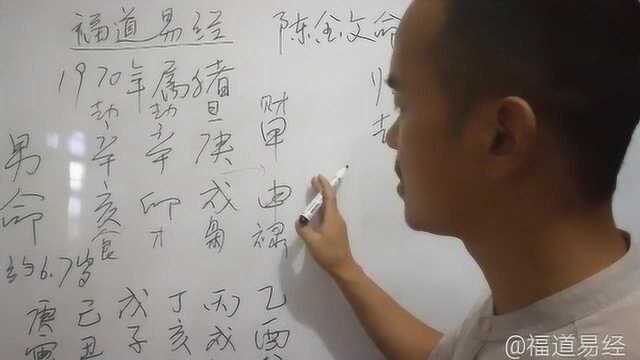 福道易经 陈金文命
1970年属猪
劫 劫 旦 财
男 辛 辛 庚 甲
命 亥 卯 戌 申
食 才 枭 禄
约6.7岁
庚 己 戊 丁 丙 乙
寅 丑 子 亥 戌 酉
@福道易经